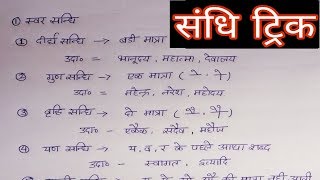 संधि ट्रिक
① स्वर सन्धि
① दीर्घ सन्धि → बडी मात्रा
उदा० - भानूदय, महात्मा, देवालय
② गुण सन्धि → एक मात्रा ( े , ो )
उदा० - महेन्द्र, नरेश, महोदय
③ वृद्धि सन्धि → दो मात्रा ( ै , ौ )
उदा० - एकैक, सदैव, महौज
④ यण सन्धि → य, व, र के पहले आधा शब्द
उदा० - स्वागत, इत्यादि